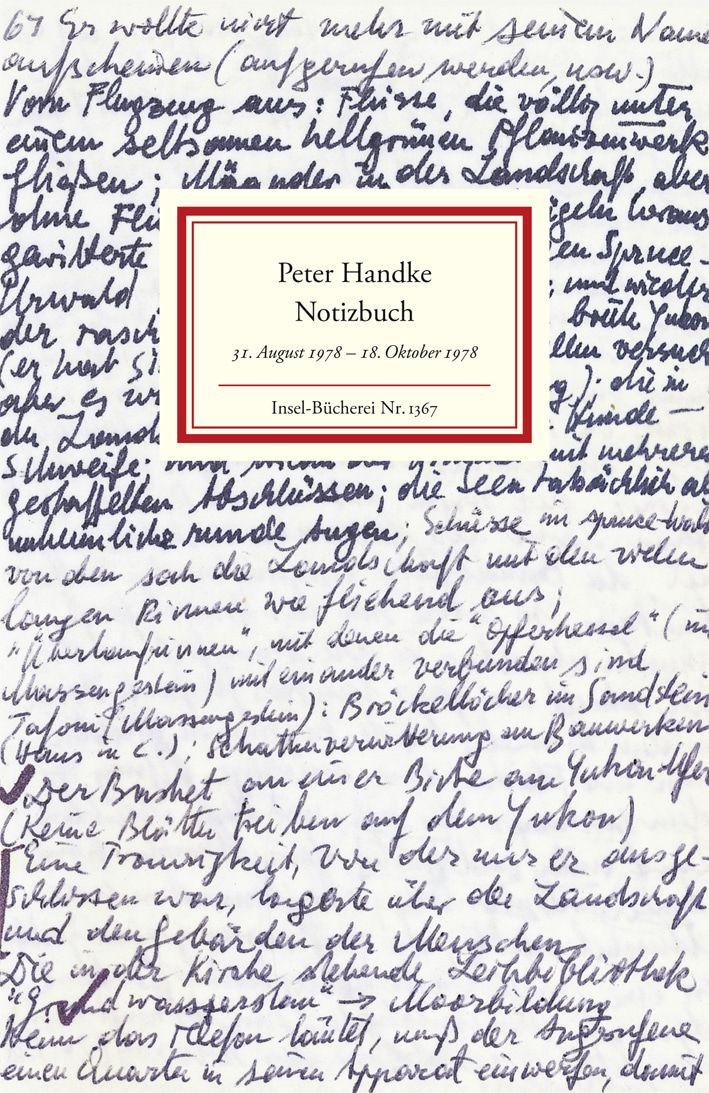 67 Er wollte nicht mehr mit seinem Name
aufscheinen (aufgerufen werden, usw.)
Vom Flugzeug aus: Flüsse, die völlig unter
einem seltsamen hellgrünen Pflanzenwerk
fließen; Mäander in der Landschaft, aber
ohne Flü
igeln heraus
gewitterte
en Spruce-
Urwald
und wieder
der rasch
breite Yukon
(er hat si
ellen versuch
aber es wi
die in
der Land
Hunde —
Schweife:
mit mehreren
gestaffelten Abschlüssen; die Seen tatsächlich al
unheimliche runde Augen; Schüsse im spruce-wald
von den sah die Landschaft mit den vielen
langen Rinnen wie fliehend aus;
"Überlaufrinnen", mit denen die "Opferkessel" (im
Massengestein) miteinander verbunden sind
Tafoni (Massengestein): Bröckellöcher im Sandstein
(Haus in C.); Schattenverwitterung an Bauwerken
Der Buchst an einer Birke am Yukon-Ufer
(Keine Blätter treiben auf dem Yukon)
Eine Traurigkeit, von der nur er ausge-
schlossen war, lagerte über der Landschaft
und den Gebärden der Menschen
Die in der Kirche stehende Leihbibliothek
"Grundwasserstau" → Moorbildung
Wenn das Telefon läutet, muß der Angerufene
einen Quarter in seinen Apparat einwerfen, damit
Peter Handke
Notizbuch
31. August 1978 – 18. Oktober 1978
Insel-Bücherei Nr. 1367